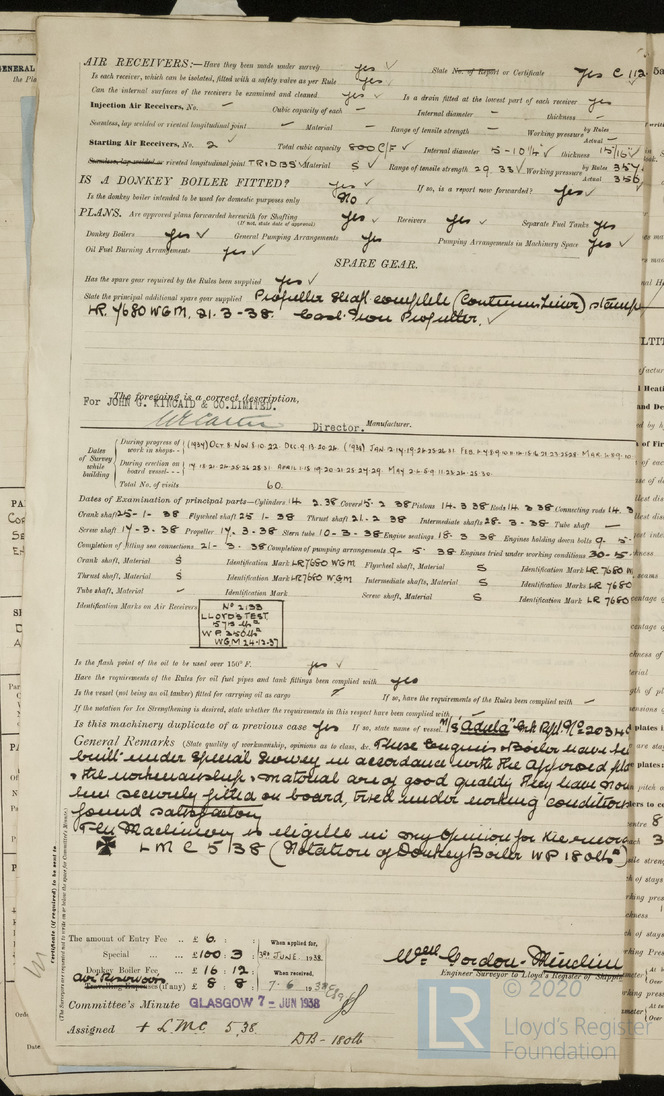 AIR RECEIVERS:—Have they been made under survey yes ✓ State No. of Report or Certificate yes C 112
Is each receiver, which can be isolated, fitted with a safety valve as per Rule yes ✓
Can the internal surfaces of the receivers be examined and cleaned yes ✓ Is a drain fitted at the lowest part of each receiver yes
Injection Air Receivers, No. – Cubic capacity of each – Internal diameter – thickness –
Seamless, lap welded or riveted longitudinal joint – Material – Range of tensile strength – Working pressure by Rules – Actual –
Starting Air Receivers, No. 2 Total cubic capacity 800 C/F ✓ Internal diameter 5-10¼ ✓ thickness 15/16 ✓
Seamless, lap welded or riveted longitudinal joint Material S ✓ Range of tensile strength 29.33 ✓ Working pressure by Rules 357 Actual 356
IS A DONKEY BOILER FITTED? yes ✓ If so, is a report now forwarded? yes ✓
Is the donkey boiler intended to be used for domestic purposes only No ✓
PLANS. Are approved plans forwarded herewith for Shafting yes ✓ Receivers yes ✓ Separate Fuel Tanks yes
(If not, state date of approval)
Donkey Boilers yes ✓ General Pumping Arrangements yes Pumping Arrangements in Machinery Space yes ✓
Oil Fuel Burning Arrangements yes ✓
SPARE GEAR.
Has the spare gear required by the Rules been supplied yes ✓
State the principal additional spare gear supplied Propeller Shaft complete (Continuous Liner) stamped
LR 7680 WGM. 21-3-38. Cast Iron Propeller. ✓
The foregoing is a correct description,
For JOHN G. KINCAID & CO. LIMITED.
Director. Manufacturer.
Dates of Survey while building
During progress of work in shops - - (1937) OCT. 8. NOV. 8.10.22. DEC. 9.13.20.24. (1938) JAN. 2.14.19.24.25.26.31.
During erection on board vessel - - - 14.18.21.24.25.26.28.31. APRIL 1.15.19.20.21.25.27.29. MAY 2.4.6.9.11.23.26.25.30.
Total No. of visits 60.
Dates of Examination of principal parts—Cylinders 14. 2.38 Covers 15. 2 38 Pistons 14. 3 38 Rods 14 3 38 Connecting rods 14. 3
Crank shaft 25-1-38 Flywheel shaft 25 1-38 Thrust shaft 21-2 38 Intermediate shafts 28-3-38 Tube shaft —
Screw shaft 17-3-38 Propeller 17-3-38 Stern tube 10-3-38 Engine seatings 18-3 38 Engines holding down bolts 9-5-
Completion of fitting sea connections 21-3-38 Completion of pumping arrangements 9-5 38 Engines tried under working conditions 30-5
Crank shaft, Material S Identification Mark LR 7680 WGM Flywheel shaft, Material S Identification Mark LR 7680 W
Thrust shaft, Material S Identification Mark LR 7680 WGM Intermediate shafts, Material S Identification Marks LR 7680
Tube shaft, Material – Identification Mark Screw shaft, Material S Identification Mark LR 7680
Identification Marks on Air Receivers
No 2133
LLOYD'S TEST
575 lbs
W P 350 lbs
WGM 24-12-37
Is the flash point of the oil to be used over 150° F. yes ✓
Have the requirements of the Rules for oil fuel pipes and tank fittings been complied with yes
Is the vessel (not being an oil tanker) fitted for carrying oil as cargo If so, have the requirements of the Rules been complied with –
If the notation for Ice Strengthening is desired, state whether the requirements in this respect have been complied with
Is this machinery duplicate of a previous case yes If so, state name of vessel M/S "Adula" Gnk Rpt No 2034
General Remarks (State quality of workmanship, opinions as to class, &c. These Engines & Boiler have been
built under Special Survey in accordance with the approved plans
& the workmanship & material are of good quality they have now
been securely fitted on board, tried under working conditions
found satisfactory
The Machinery is eligible in my opinion for the record
✠ LMC 5 38 (Notation of Donkey Boiler WP 180 lbs)
Certificate (if required) to be sent to
(The Surveyors are requested not to write on or below the space for Committee's Minute.)
The amount of Entry Fee .. £ 6 : : When applied for,
Special ... £ 100 : 3 : 3rd JUNE 1938.
Donkey Boiler Fee ... £ 16 : 12 : When received,
Air Receivers
Travelling Expenses (if any) £ 8 : 8 : 7.6.1938
Wm Gordon-
Engineer Surveyor to Lloyd's Register of Shipping
Committee's Minute GLASGOW 7 - JUN 1938
Assigned + LMC 5.38.
DB - 180 lb
LR
© 2020
Lloyd's Register
Foundation